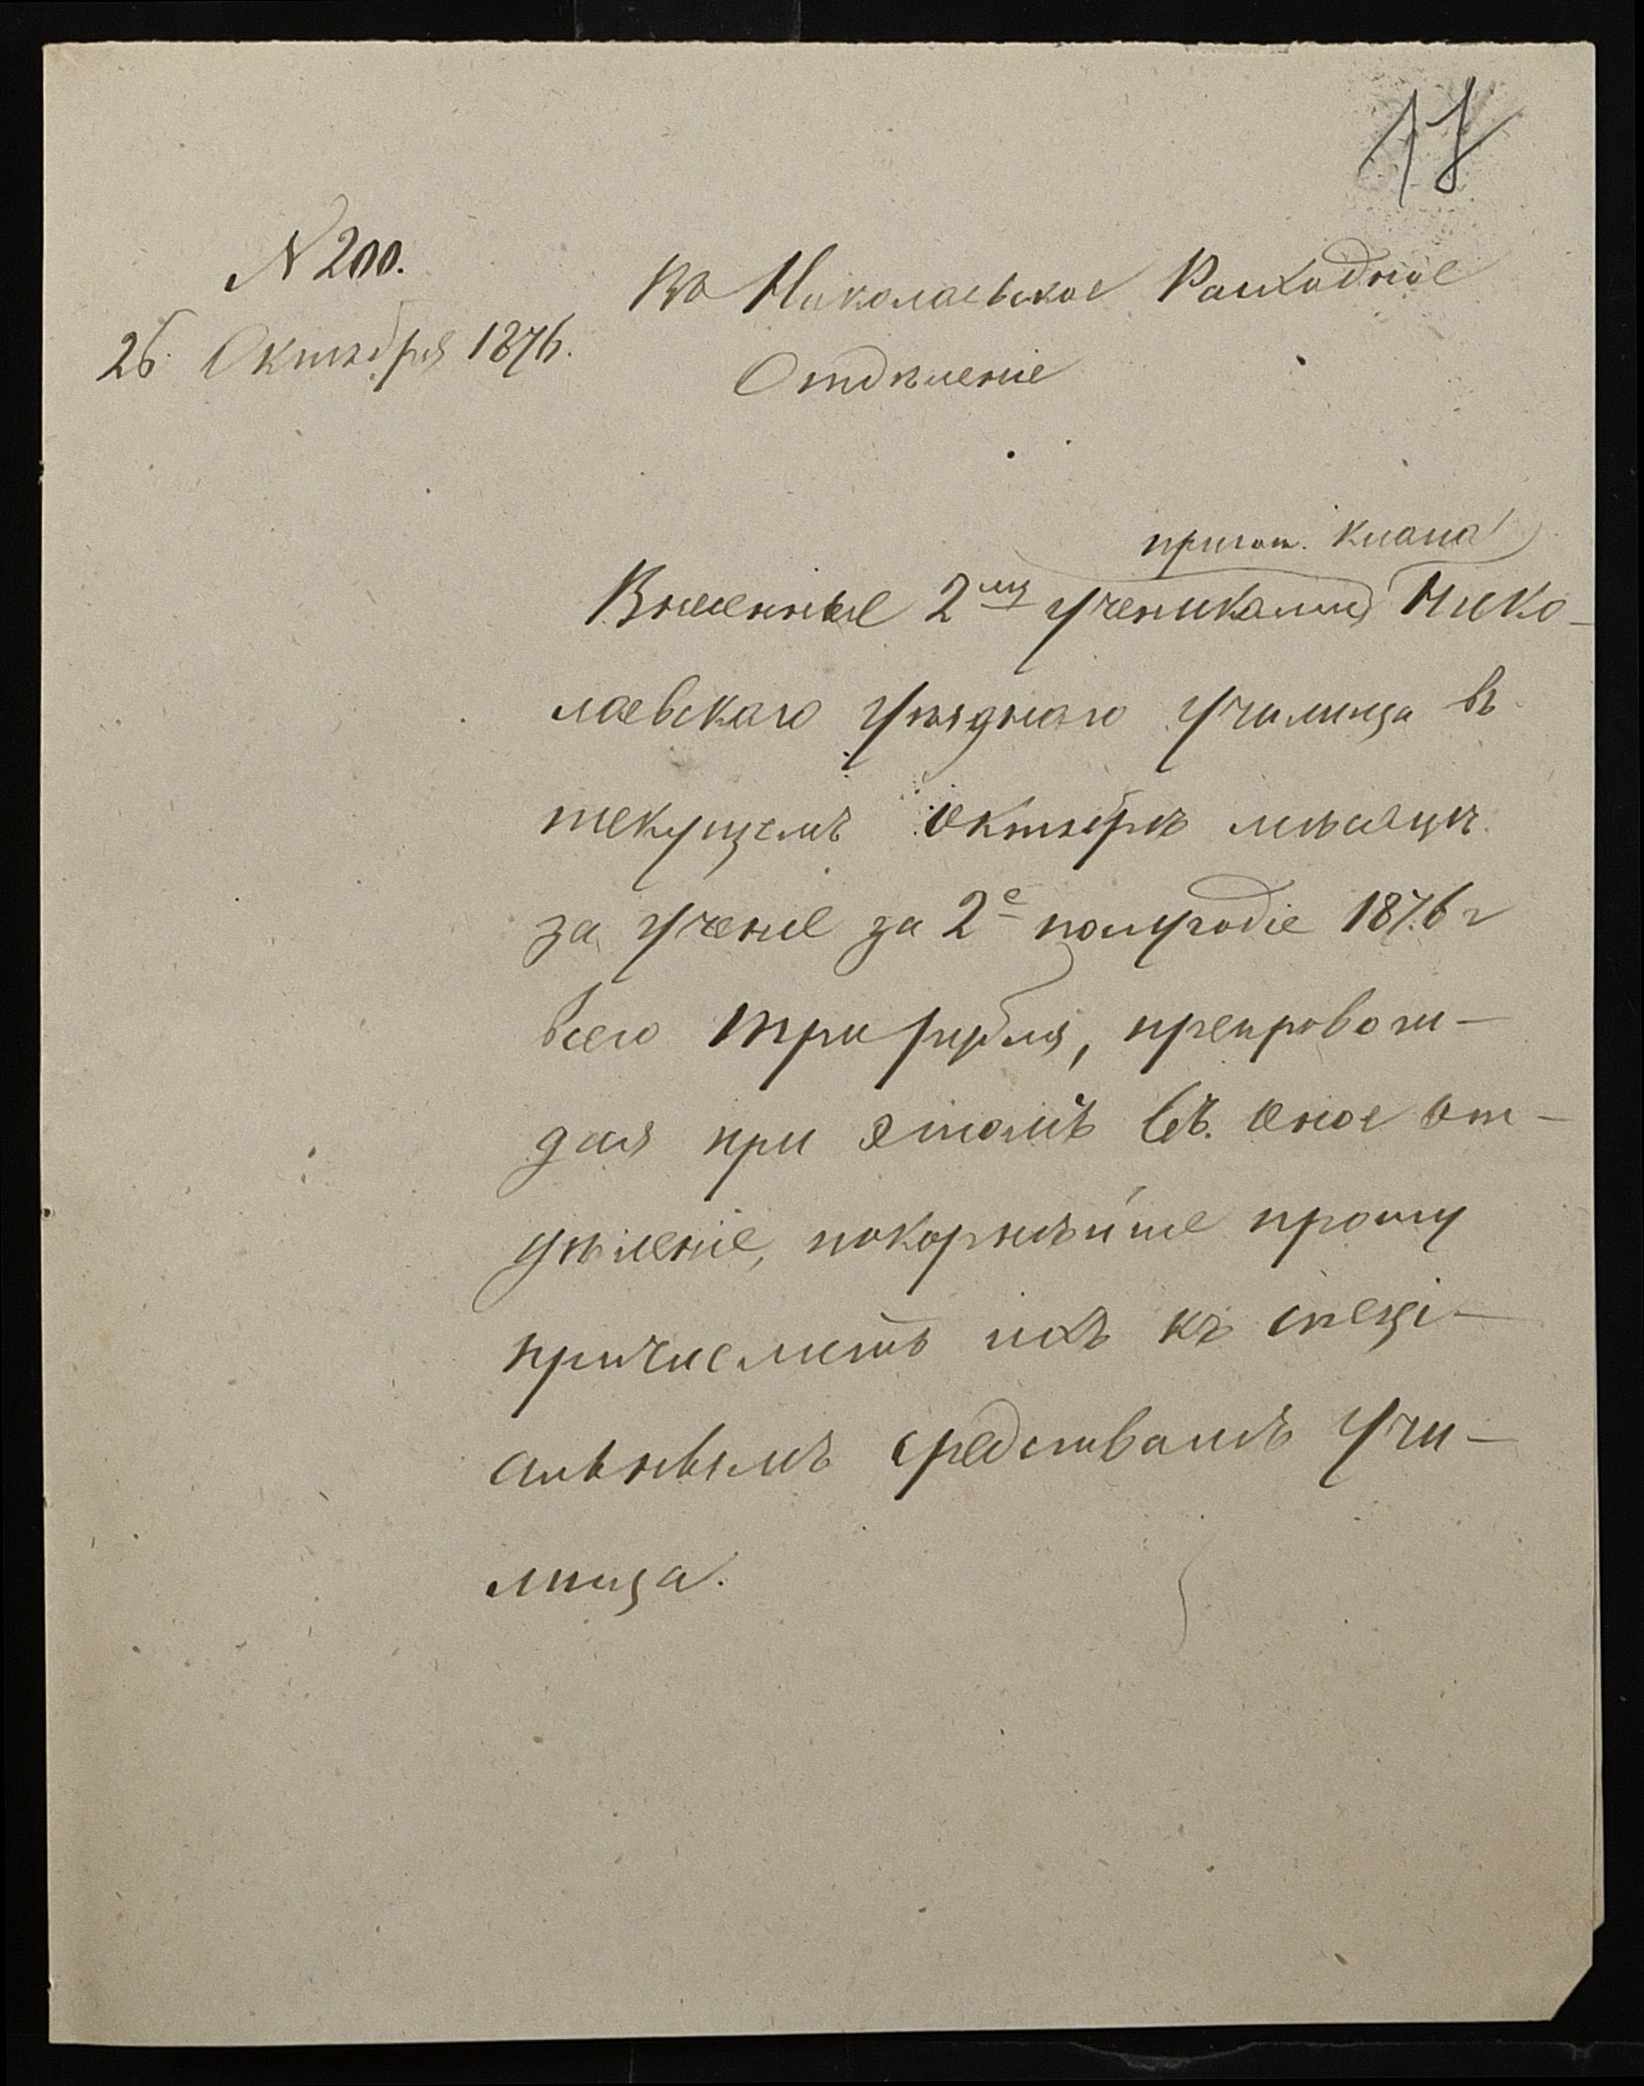 17
N 200.
26 Октября 1876.
Въ Николаевское Расходное
Отдѣленіе
пригот. класса
Внесенные 2мя учениками Нико-
лаевскаго уѣзднаго училища въ
текущемъ октябрѣ мѣсяцѣ
за ученіе за 2е полугодіе 1876 г
всего три рубля, препровож-
дая при этомъ въ оное от-
дѣленіе, покорнѣйше прошу
причислить ихъ къ спеці-
альнымъ средствамъ учи-
лища.